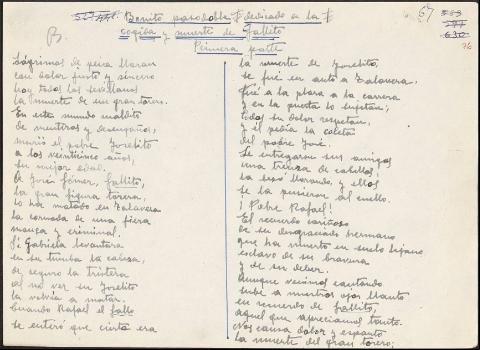 Bonito pasodoble dedicado a la
cogida y muerte de Gallito
Primera parte
B.
67
630
76
Lágrimas de pena lloran
con dolor justo y sincero
hoy todos los sevillanos
la muerte de un gran torero.
En este mundo maldito
de mentiras y desengaños,
murió el pobre Joselito
a los veinticinco años,
su mejor edad.
A José Gómez, Gallito,
la gran figura torera,
lo ha matado en Talavera
la cornada de una fiera
mansa y criminal.
Si Gabriela levantara
en su tumba la cabeza,
de seguro la tristeza
al no ver su Joselito
la volvía a matar.
Cuando Rafael el Gallo
se enteró que cierta era
la muerte de Joselito,
se fué en auto a Talavera,
Fué a la plaza a la carrera
y en la puerta lo sujetan;
todos su dolor respetan,
y él pedía la coleta
del pobre José.
Le entregaron sus amigos
una trenza de cabellos,
la besó llorando, y ellos
se la pusieron al cuello.
¡Pobre Rafael!
El recuerdo cariñoso
de su desgraciado hermano
que ha muerto en suelo lejano
esclavo de su bravura
y de su deber.
Aunque venimos cantando
sube a nuestros ojos llanto
en recuerdo de Gallito,
aquel que apreciamos tanto.
Nos causa dolor y espanto
la muerte del gran torero;